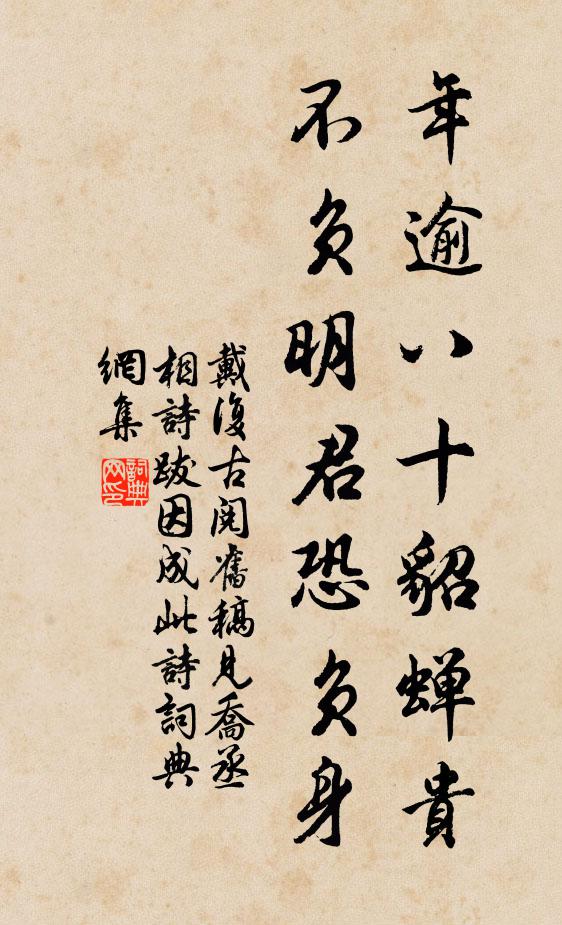 年逾八十貂蝉貴
不負明君恐負身
戴復古閱舊稿見喬丞
相詩跋因成此詩詞典
網集
詞典
网印